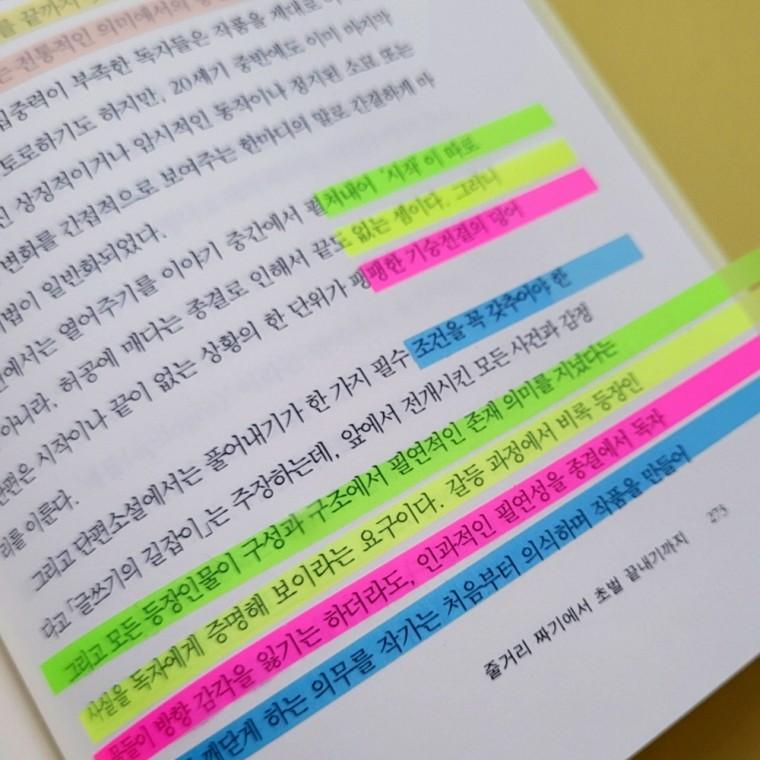 를 끝까지
는 전통적인 의미에서의
집중력이 부족한 독자들은 작품을 제대로
토로하기도 하지만, 20세기 중반에도 이미 마지막
상징적이거나 암시적인 동작이나 정지된 소묘 또는
변화를 간접적으로 보여주는 한마디의 말로 간결하게 마
법이 일반화되었다.
에서는 열어주기를 이야기 중간에서 펼쳐내어 '시작'이 따로
아니라, 허공에 매다는 종결로 인해서 끝도 없는 셈이다. 그러니
단편은 시작이나 끝이 없는 상황의 한 단위가 팽팽한 기승전결의 덩어
리를 이룬다.
그리고 단편소설에서는 풀어내기가 한 가지 필수 조건을 꼭 갖추어야 한
다고 「글쓰기의 길잡이」는 주장하는데, 앞에서 전개시킨 모든 사건과 감정
그리고 모든 등장인물이 구성과 구조에서 필연적인 존재 의미를 지녔다는
사실을 독자에게 증명해 보이라는 요구이다. 갈등 과정에서 비록 등장인
물들이 방향 감각을 잃기는 하더라도, 인과적인 필연성을 종결에서 독자
깨닫게 하는 의무를 작가는 처음부터 의식하며 작품을 만들어
줄거리 짜기에서 초벌 끝내기까지 275